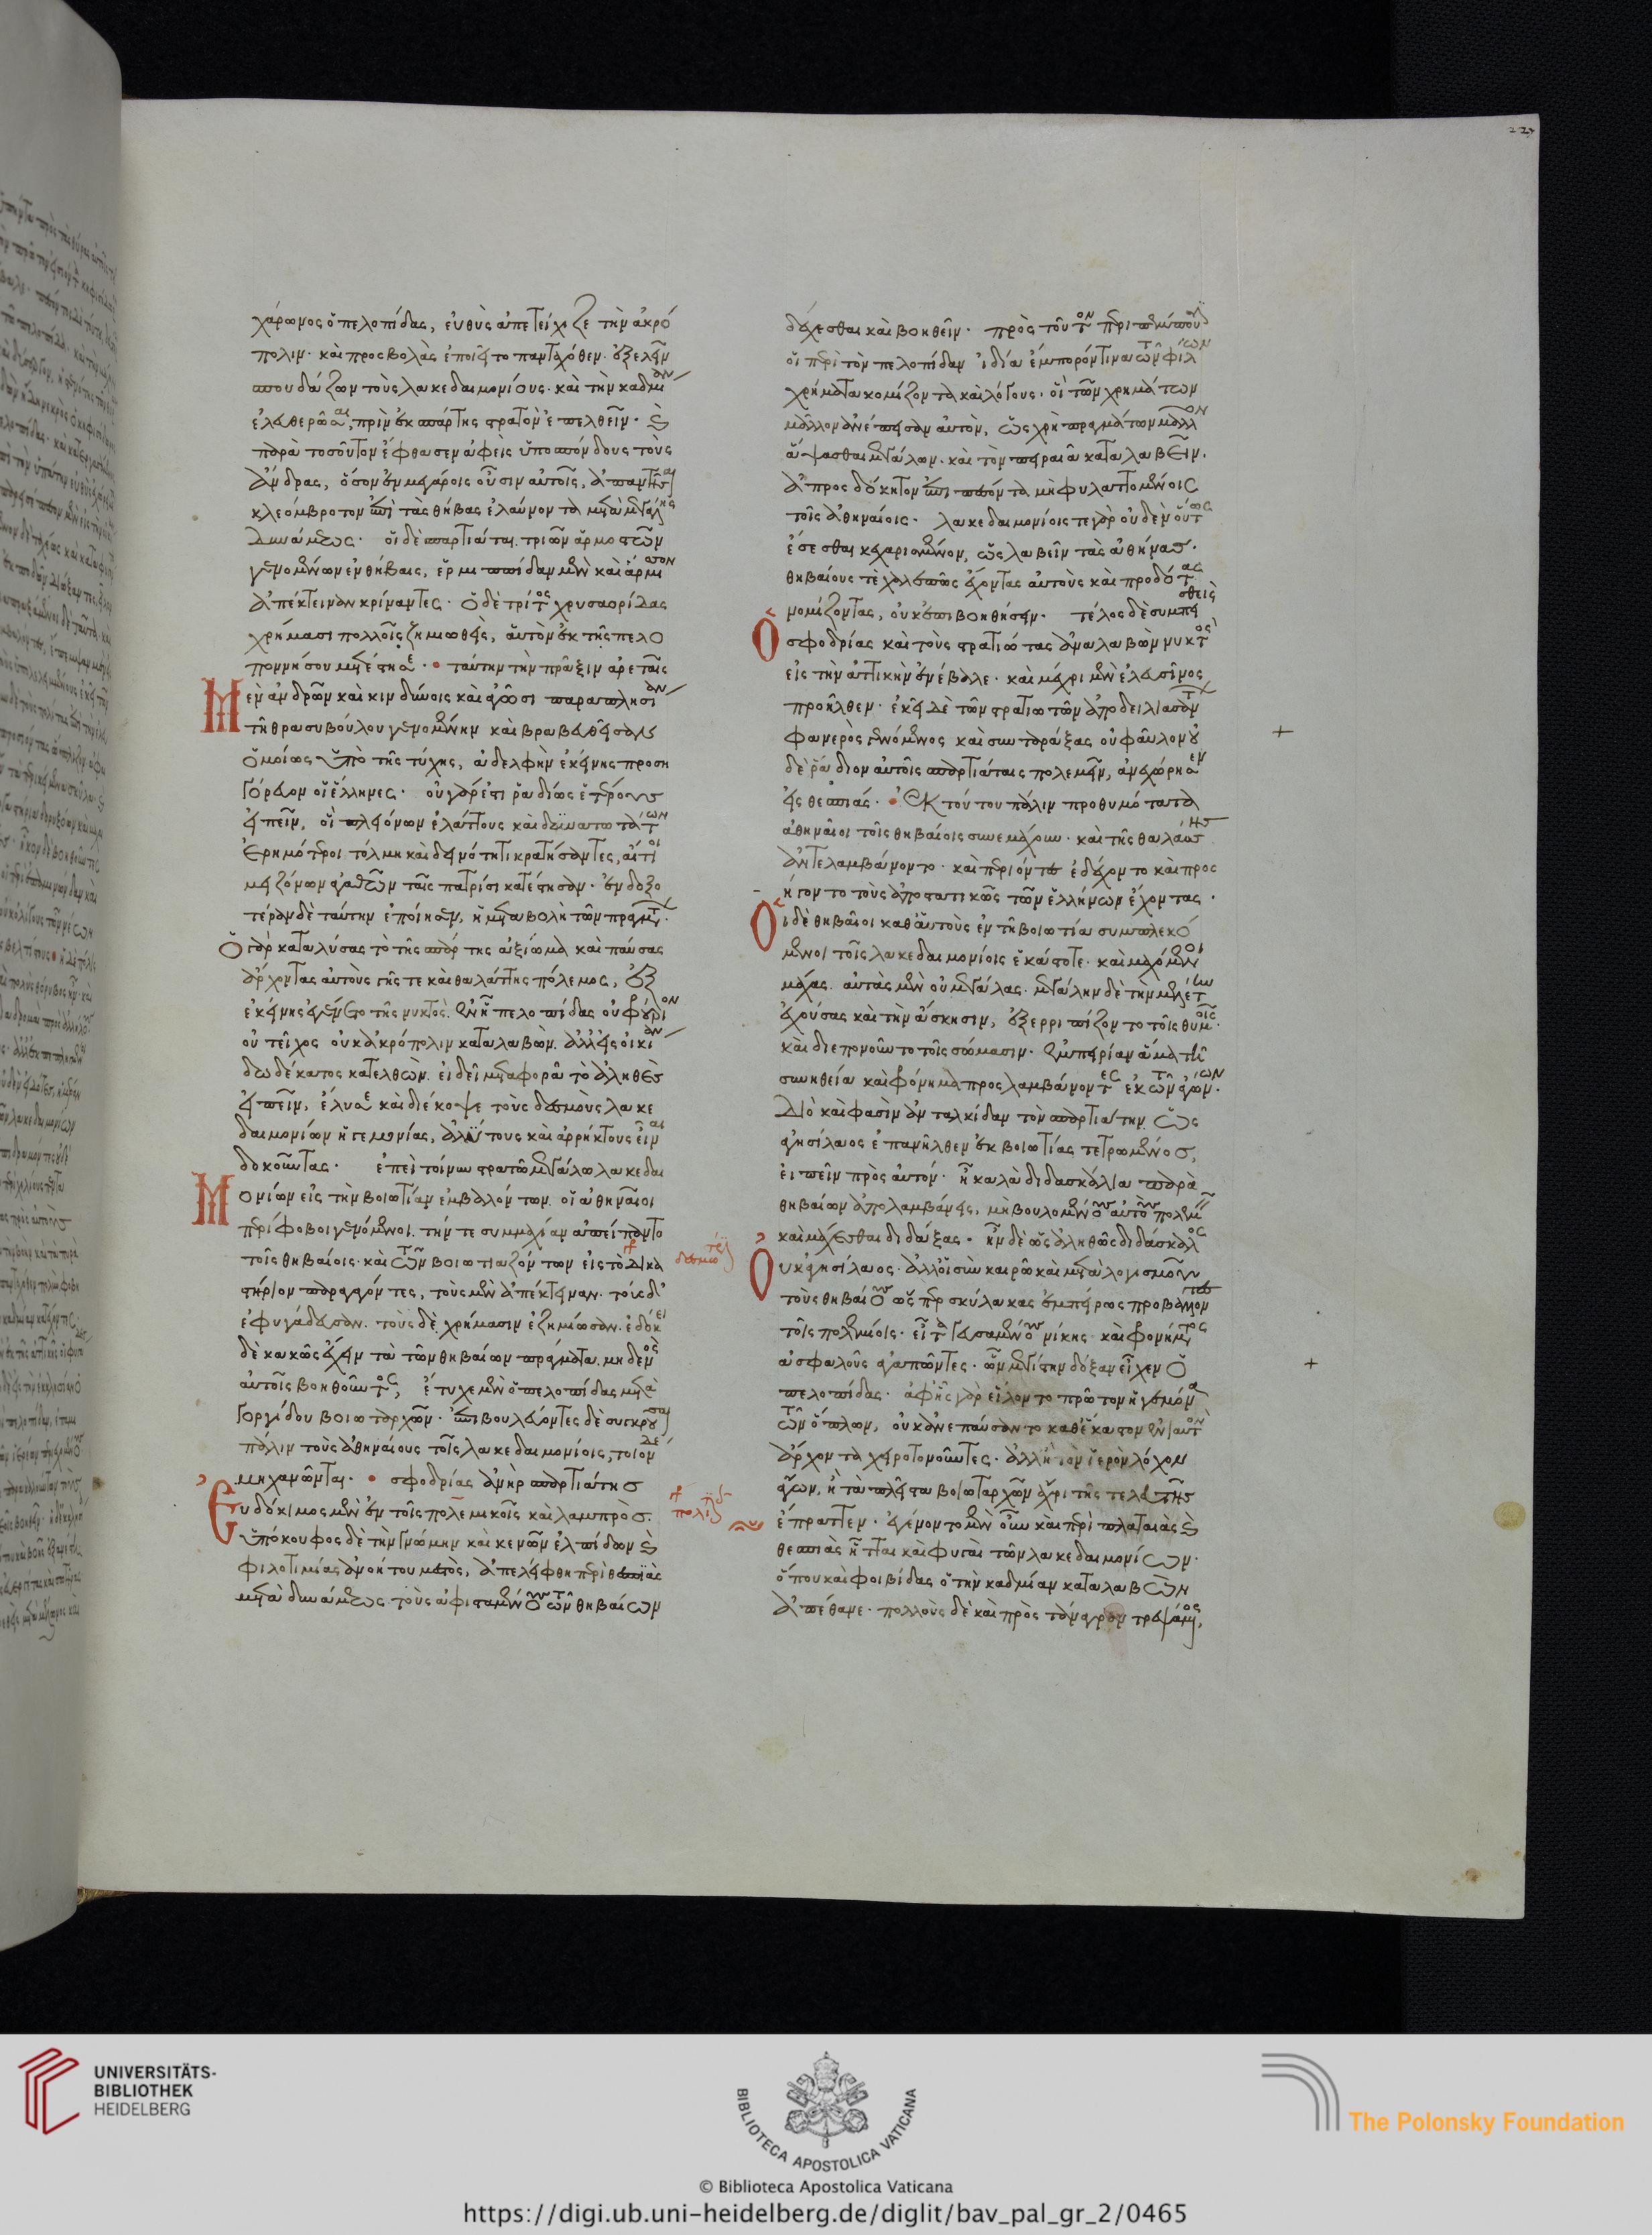 χάρωνος ὁ πελοπίδας, εὐθὺς ἀπετείχιζε τὴν ἀκρό
πολιν· καὶ προσβολὰς ἐποιεῖτο πανταχόθεν· ἐξελεῖν
σπουδάζων τοὺς λακεδαιμονίους· καὶ τὴν καδμείαν
ἐλευθερῶσαι, πρὶν ἐκ σπάρτης στρατὸν ἐπελθεῖν· καὶ
παρὰ τοσοῦτον ἔφθασεν ἀφεὶς ὑποσπόνδους τοὺς
ἄνδρας, ὅσον ἐν μεγάροις οὖσιν αὐτοῖς, ἀπαντῆσαι
κλεόμβροτον ἐπὶ τὰς θήβας ἐλαύνοντα μετὰ μεγάλης
δυνάμεως· οἱ δὲ σπαρτιάται, τριῶν ἁρμοστῶν
γενομένων ἐν θήβαις, ἑρμιππίδαν μὲν καὶ
ἀπέκτειναν κρίναντες· ὁ δὲ τρίτος χυσαορίδας
χρήμασι πολλοῖς ζημιωθεὶς, αὑτὸν ἐκ τῆς πελο
ποννήσου μετέστησε· ταύτην τὴν πρᾶξιν ἀρεταῖς
Μὲν ἀνδρῶν καὶ κινδύνοις καὶ ἀγῶσι παραπλησίαν
τῇ θρασυβούλου γενομένην καὶ βραβευθεῖσαν
ὁμοίως ὑπὸ τῆς τύχης, ἀδελφὴν ἐκείνης προση
γόρευον οἱ ἕλληνες· οὐ γάρ ἐστι ῥαδίως ἑτέρους
εἰπεῖν, οἳ πλεόνων ἐλάττους καὶ δυνατωτάτων
ἐρημότεροι τόλμῃ καὶ δεινότητι κρατήσαντες, αἴτιοι
μειζόνων ἀγαθῶν ταῖς πατρίσι κατέστησαν· ἐνδοξο
τέραν δὲ ταύτην ἐποίησεν, ἡ μεταβολὴ τῶν πραγμάτων·
Ὁ γὰρ καταλύσας τὸ τῆς σπάρτης ἀξίωμα καὶ παύσας
ἄρχοντας αὐτοὺς γῆς τε καὶ θαλάττης πόλεμος, ἐξ
ἐκείνης ἐγένετο τῆς νυκτός· ἐν ᾗ πελοπίδας οὐ φρούριον
οὐ τεῖχος οὐκ ἀκρόπολιν καταλαβὼν· ἀλλ' εἰς οἰκίαν
δωδέκατος κατελθὼν· εἰ δεῖ μεταφορᾷ τὸ ἀληθὲς
εἰπεῖν, ἔλυσε καὶ διέκοψε τοὺς δεσμοὺς λακε
δαιμονίων ἡγεμονίας, ἀλύτους καὶ ἀρρήκτους εἶναι
δοκοῦντας· ἐπεὶ τοίνυν στρατῷ μεγάλῳ λακεδαι
Μονίων εἰς τὴν βοιωτίαν ἐμβαλόντων· οἱ ἀθηναῖοι
περίφοβοι γενόμενοι· τήν τε συμμαχίαν ἀπείπαντο
τοῖς θηβαίοις· καὶ τῶν βοιωτιαζόντων εἰς τὸ δικα
στήριον παραγαγόντες, τοὺς μὲν ἀπέκτειναν· τοὺς δ'
ἐφυγάδευσαν· τοὺς δὲ χρήμασιν ἐζημίωσαν· ἐδόκει
δὲ κακῶς ἔχειν τὰ τῶν θηβαίων πράγματα· μηδενὸς
αὐτοῖς βοηθοῦντος, ἔτυχε μὲν ὁ πελοπίδας μετὰ
γοργίδου βοιωταρχῶν· ἐπιβουλεύοντες δὲ συγκροῦσαι
πάλιν τοὺς ἀθηναίους τοῖς λακεδαιμονίοις, τοιόνδε
μηχανῶνται· σφοδρίας ἀνὴρ σπαρτιάτης
Εὐδόκιμος μὲν ἐν τοῖς πολεμικοῖς καὶ λαμπρὸς·
ὑπόκουφος δὲ τὴν γνώμην καὶ κενῶν ἐλπίδων καὶ
φιλοτιμίας ἀνοήτου μεστὸς, ἀπελείφθη περὶ θεσπιὰς
μετὰ δυνάμεως τοὺς ἀφισταμένους τῶν θηβαίων
δεσμω
πολεμ
227
δέχεσθαι καὶ βοηθεῖν· πρὸς τοῦτον
οἱ περὶ τὸν πελοπίδαν ἰδίᾳ ἔμπορόν τινα τῶν φίλων
χρήματα κομίζοντα καὶ λόγους· οἳ τῶν χρημάτων
μᾶλλον ἀνέπεισαν αὐτὸν, ὡς χρὴ πραγμάτων μᾶλλον
ἅψασθαι μεγάλων· καὶ τὸν πειραιᾶ καταλαβεῖν·
ἀπροσδόκητον ἐπιπεσόντα μὴ φυλαττομένοις
τοῖς ἀθηναίοις· λακεδαιμονίοις τε γὰρ οὐδὲν οὕτως
ἔσεσθαι κεχαρισμένον, ὡς λαβεῖν τὰς ἀθήνας·
θηβαίους τὲ χαλεπῶς ἔχοντας αὐτοὺς καὶ προδότας
νομίζοντας, οὐκ ἐπιβοηθήσειν· τέλος δὲ συμπεισθεὶς
Ὁ σφοδρίας καὶ τοὺς στρατιώτας ἀναλαβὼν νυκτὸς
εἰς τὴν ἀττικὴν ἐνέβαλε· καὶ μέχρι μὲν ἐλευσῖνος
προῆλθεν· ἐκεῖ δὲ τῶν στρατιωτῶν ἀποδειλιασάντων
φανερὸς γενόμενος καὶ συνταράξας οὐ φαῦλον οὐ
δὲ ῥάδιον αὐτοῖς σπαρτιάταις πόλεμον, ἀνεχώρησεν
εἰς θεσπιάς· Ἐκ τούτου πάλιν προθυμότατα
ἀθηναῖοι τοῖς θηβαίοις συνεμάχουν· καὶ τῆς θαλάσσης
ἀντελαμβάνοντο· καὶ περιιόντες ἐδέχοντο καὶ προσ
ήγοντο τοὺς ἀποστατικῶς τῶν ἑλλήνων ἔχοντας·
Οἱ δὲ θηβαῖοι καθ' αὑτοὺς ἐν τῇ βοιωτίᾳ συμπλεκό
μενοι τοῖς λακεδαιμονίοις ἑκάστοτε· καὶ μαχόμενοι
μάχας· αὐτὰς μὲν οὐ μεγάλας· μεγάλην δὲ τὴν μελέτην
ἐχούσας καὶ τὴν ἄσκησιν, ἐξερριπίζοντο τοῖς θυμοῖς·
καὶ διεπονοῦντο τοῖς σώμασιν· ἐμπειρίαν ἅμα τῇ
συνηθείᾳ καὶ φρόνημα προσλαμβάνοντες ἐκ τῶν ἀγώνων·
Διὸ καὶ φασὶν ἀνταλκίδαν τὸν σπαρτιάτην ὡς
ἀγησίλαος ἐπανῆλθεν ἐκ βοιωτίας τετρωμένος,
εἰπεῖν πρὸς αὐτόν· ἦ καλὰ διδασκάλια παρὰ
θηβαίων ἀπολαμβάνεις, μὴ βουλομένους αὐτοὺς πολεμεῖν
καὶ μάχεσθαι διδάξας· ἦν δὲ ὡς ἀληθῶς διδάσκαλος
Οὐκ ἀγησίλαος· ἀλλ' οἱ σὺν καιρῷ καὶ μετὰ λογισμοῦ
τοὺς θηβαίους ὥσπερ σκύλακας ἐμπείρως προβάλλοντες
τοῖς πολεμίοις· εἶτα γευσαμένους νίκης καὶ φρονήματος
ἀσφαλοῦς ἀγαπῶντες· ὧν μεγίστην δόξαν εἶχεν ὁ
πελοπίδας· ἀφ' ἧς γὰρ εἵλοντο πρῶτον ἡγεμόνα
τῶν ὅπλων, οὐκ ἀνεπαύσαντο καθ' ἕκαστον ἐνιαυτὸν
ἄρχοντα χειροτονοῦντες· ἀλλ' ἢ τὸν ἱερὸν λόχον
ἄγων, ἢ τὰ πλεῖστα βοιωταρχῶν ἄχρι τῆς τελευτῆς
ἔπραττεν· ἐγένοντο μὲν οὖν καὶ περὶ πλαταιὰς καὶ
θεσπιὰς ἧτται καὶ φυγαὶ τῶν λακεδαιμονίων·
ὅπου καὶ φοιβίδας ὁ τὴν καδμείαν καταλαβὼν
ἀπέθανε· πολλοὺς δὲ καὶ πρὸς τανάγραν τρεψάμενος,
UNIVERSITÄTS-
BIBLIOTHEK
HEIDELBERG
BIBLIOTECA APOSTOLICA VATICANA
© Biblioteca Apostolica Vaticana
The Polonsky Foundation
https://digi.ub.uni-heidelberg.de/diglit/bav_pal_gr_2/0465